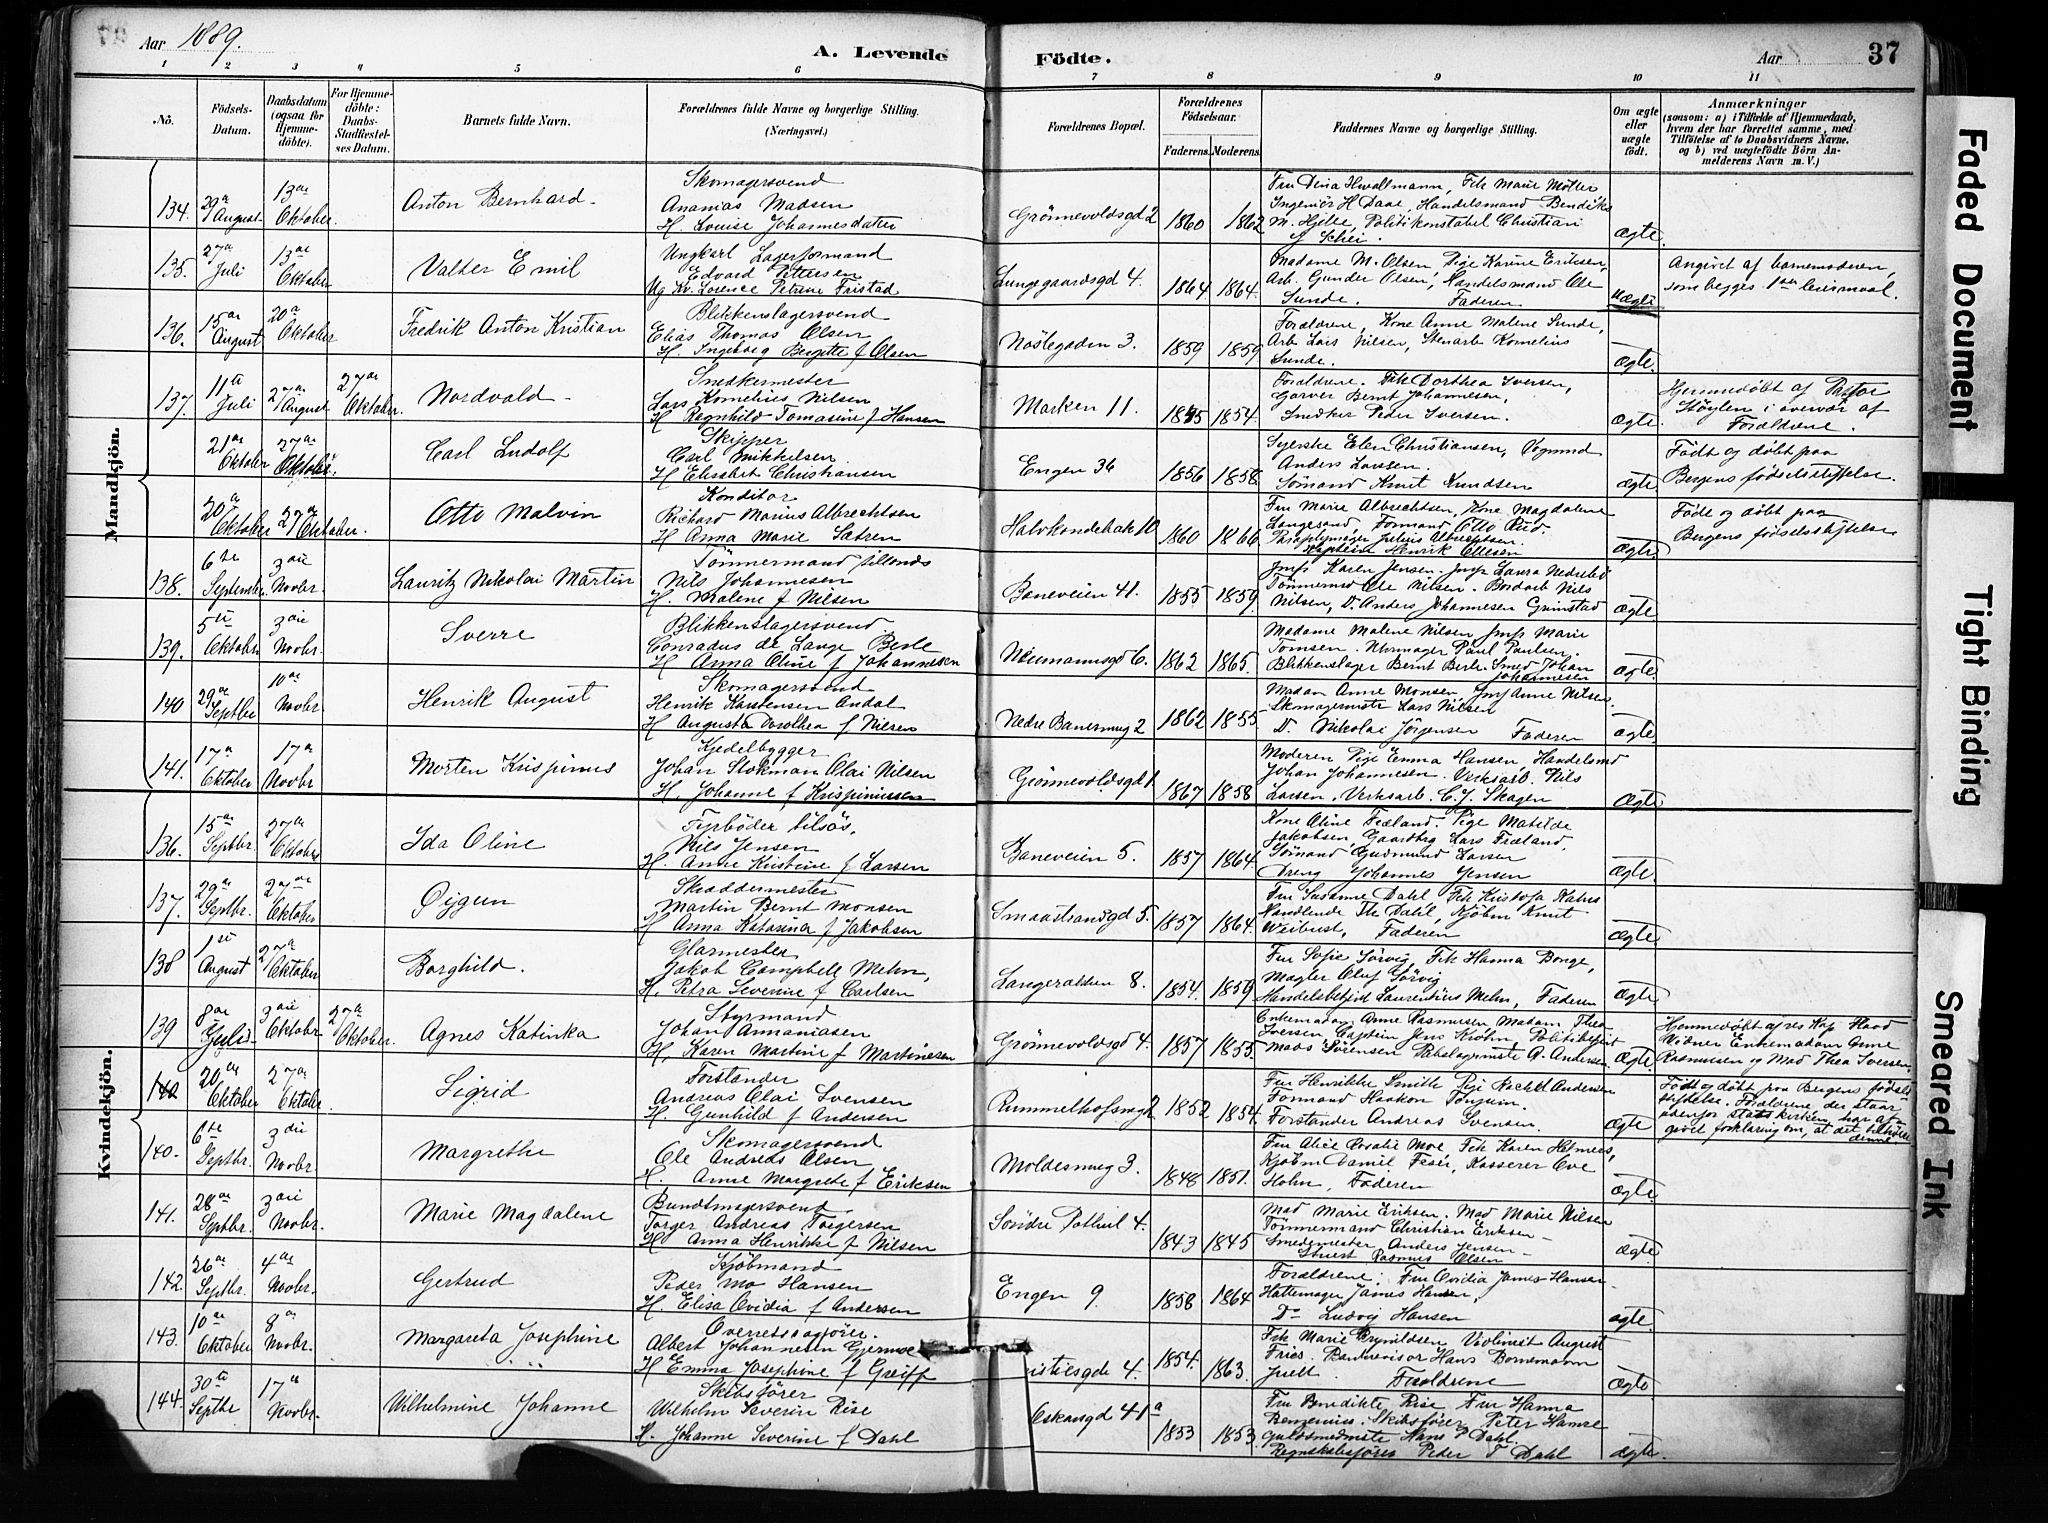 Aar 1889.
A. Levende
Födte.
Aar
37
1 2 3 4 5 6 7 8 9 10 11
No.
Födsels-Datum.
Daabsdatum (ogsaa for Hjemme-döbte).
For Hjemme-döbte: Daabs-Stadfæstel-ses Datum.
Barnets fulde Navn.
Forældrenes fulde Navne og borgerlige Stilling. (Næringsvei.)
Forældrenes Bopæl.
Forældrenes Födselsaar.
Faderens. Moderens.
Faddernes Navne og borgerlige Stilling.
Om ægte eller uægte födt.
Anmærkninger
(saasom: a) i Tilfælde af Hjemmedaab, hvem der har forrettet samme, med Tilföielse af to Daabsvidners Navne. og b) ved uægtefödte Börn Anmelderens Navn m. V.)
Mandkjön.
134. 29de August 13de Oktober. Anton Bernhard
Skomagersvend
Ananias Madsen
H. Louise Johannesdatter
Grönnevoldsgd 2 1860 1862
Ingeniör H Daae, Handelsmand Bendiks
M. Hjelte, Politikonstabel Christian
ægte.
135. 27de Juli 13de Oktober Valter Emil
Ungkarl Lagerformand
Edvard Pettersen
Ug Kv. Lorence Petrine Fristad
Lungegaardsgd 4. 1864 1864.
Madame M. Olsen, Pige Karine Eriksen,
Arb. Gunder Olsen, Handelsmand Ole
Sunde. Faderen
uægte
Angivet af barnemoderen,
som begges 1ste leiermaal.
136. 15de August 20de Oktober Fredrik Anton Kristian
Blikkenslagersvend
Elias Thomas Olsen
H. Ingeborg Birgitte f Olsen
Nöstegaden 3. 1859 1859
Forældrene, Kone Anne Malene Sunde,
Arb Lars Nilsen, Stenarb Kornelius
Sunde.
ægte.
137. 11te Juli 27de August 27de Oktober. Nordvald
Snedkermester
Lars Kornelius Nilsen
H Ragnhild Tomasine f Hansen
Marken 11. 1855 1854.
Forældrene. Frk Dorthea Iversen,
Garver Bernt Johannesen,
Snedker Peder Iversen.
ægte.
Hjemmedöbt af Pastor
Stöylen i overvær af
Forældrene.
21de Oktober 27de Oktober. Carl Ludolf
Skipper
Carl Mikkelsen
H Elisabet Christiansen
Engen 36 1856 1858.
Syerske Elen Christiansen, Vognmd
Anders Larsen.
Sömand Knut Knudsen
ægte.
Födt og döbt paa
Bergens födselsstiftelse.
20de Oktober 27de Oktober. Otto Malvin
Konditor
Richard Marius Albrechtsen
H Anna Marie Sætren
Halvkandebak 10 1860 1866
Fru Marie Albrechtsen, Kone Magdalene
Langesand, Formand Otto Rud.
Paraplymager Julius Albrechtsen.
Kaptein Henrik Ellesen
ægte.
Födt og döbt paa
Bergens födselsstiftelse
138. 6te September 3die Novbr. Lauritz Nikolai Martin
Tömmermand tillands
Nils Johannesen
H. Malene f Nilsen
Baneveien 41. 1855 1859.
Jmf Karen Jensen. Jmf Laura Nedrebö
Tömmermd Ole Nilsen. Bordarb Nils
Nilsen, Do Anders Johannesen Grimstad
ægte
139. 5te Oktober 3die Novbr. Sverre
Blikkenslagersvend
Conradus de Lange Berle
H. Anna Oline f Johannesen
Neumannsgd 6. 1862 1865.
Madame Malene Nilsen Jmf Marie
Tomsen. Uhrmager Paul Paulsen.
Blikkenslager Bernt Berle. Smed Johan
Johannesen
ægte
140 29de Septbr 10de Novbr. Henrik August
Skomagersvend
Henrik Karstensen Andal
H Augusta Dorothea f Nilsen
Nedre Banesmug 2 1862 1855
Madam Anne Monsen, Jmf Anne Nilsen.
Skomagermester Lars Nilsen
D. Nikolai Jörgensen Faderen
ægte.
141. 17de Oktober 17de Novbr Morten Krispinus
Kjedelbygger
Johan Stokman Olai Nilsen
H. Johanne f Krispinussen
Grönnevoldsgd 1. 1867 1858
Moderen Pige Emma Hansen Handelsmd
Johan Johannesen. Verksarb. Nils
Larsen, Verksarb. C. J. Skagen
ægte
Kvindekjön.
136. 15de Septbr. 27de Oktober Ida Oline
Fyrböder tilsös,
Nils Jensen
H. Anne Kristine f Larsen
Baneveien 5. 1857 1864
Kone Oline Fæland. Pige Matilde
Jakobsen, Gaardbrg Lars Fræland.
Sömand Gudmund Larsen
Dreng Johannes Jensen
ægte.
137. 29de Septbr. 27de Oktober Øygun
Skræddermester
Martin Bernt Monsen
H Anna Katarina f Jakobsen
Smaastrandgd 5. 1857 1864.
Fru Susanne Dahl Frk Kristofa
Handlende Th Dahl, Kjöbm Knut
Weibust, Faderen
ægte
138 1ste August 27de Oktober Borghild.
Glarmester
Jakob Campbell Mehn,
H. Petra Severine f Carlsen
8. 1854. 1859
Fru Sofie Sörvig, Frk Hanna Bonge,
Mægler Oluf Sörvig
Handelsbetjet Laurentius Mehn, Faderen
ægte
139 8de Juli 3die Oktober 27de Oktober. Agnes Katinka
Styrmand
Johan Annaniasen
H. Karen Martine f Martinesen
Grönnevoldsgd 4. 1857 1855
Enkemadam Anne Rasmusen Madam Thea
Iversen Captein Jens Krohn, Politibetjent
Mads Sörensen A. Andersen
ægte
Hjemmedöbt af res Kap Flood
Vidner Enkemadam Anne
Rasmusen og Mad Thea Iversen.
140 20de Oktober 27de Oktober Sigrid
Forstander
Andreas Olai Svensen
H. Gunhild f Andersen
Rummelhofsmg 2 1852 1854.
Fru Henrikke Smith Pige Rachel Andersen
Formand Haakon Tonjum.
Forstander Andreas Svensen.
ægte
Födt og döbt paa Bergens födsels-
stiftelse. Forældrene der staar
udenfor statskirken har af-
givet forklaring om, at det tilhörer
denne
140. 6te Septbr. 3die Novbr. Margrethe
Skomagersvend
Ole Andreas Olsen
H. Anne Margrete f Eriksen
Moldesmug 3. 1848 1851.
Fru Alice Moe Frk Karen Helmers,
Kjöbm Daniel Feser, Kasserer Ove
Holm, Faderen
ægte.
141. 28de Septbr. 3die Novbr. Marie Magdalene
Bundtmagersvend.
Torger Andreas Torgersen
H Anna Henrikke f Nilsen
Söndre 4. 1843 1845
Mad Marie Eriksen. Mad Marie Nilsen
Tömmermand Christian Eriksen
Smedemester Anders Jensen
Stuert Rasmus Olsen
ægte.
142. 26de Septbr. 4de Novbr. Gertrud
Kjöbmand
Peder Mo Hansen
H. Elisa Ovidia f Andersen
Engen 9. 1858 1864
Forældrene. Fru Ovidia James Hansen
Hattemager James Hansen,
Do Ludvig Hansen
ægte.
143. 10de Oktober 8de Novbr. Margareta Josephine
Overretssagförer.
Albert Johannesen Gjermoe
H Emma Josephine f Greiff
istiesgde 4. 1854. 1863.
Frk Marie Brynildsen Violinist August
Fries. Bankrevisor Hans Bornemann
Juell. Forældrene
ægte
144. 30te Septbr 17de Novbr. Wilhelmine Johanne
Skibsförer
Wilhelm Severin Rise
H. Johanne Severine f Dahl
Oskarsgd 41a 1853 1853.
Fru Benedikte Rise Fru Hanna
Skibsförer Peter Hamre
Guldsmedmester Hans P Dahl.
Regnskabsförer Peder T Dahl
ægte.
Faded Document
Tight Binding
Smeared Ink